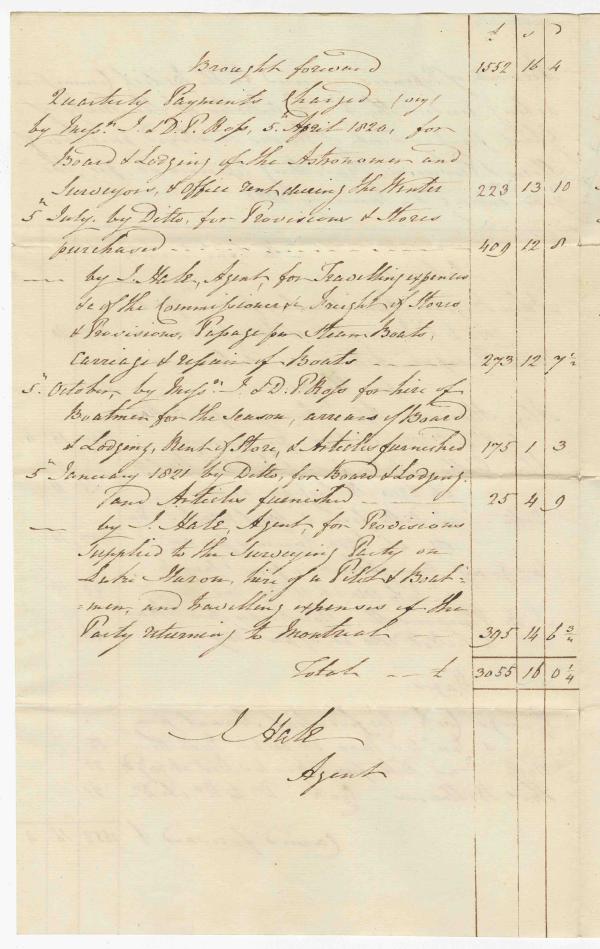 £ s D
Brought forward 1552 16 4
Quarterly Payments Charged
by Messrs. J. & D. P. Ross, 5th April 1820, for
Board & Lodging of the Astronomer and
Surveyors, & Office rent during the Winter 223 13 10
5th July, by Ditto, for Provisions & Stores
purchased 409 12 8
by J. Hale, Agent, for Travelling expences
&c of the Commissioner & Freight of Stores
& Provisions, Passage per Steam Boats,
Carriage & repair of Boats 273 12 7½
5th October, by Messrs. J. & D. P. Ross for hire of
Boatmen for the Season, arrears of Board
& Lodging, Rent of Store, & Articles furnished 175 1 3
5th January 1821 by Ditto, for Board & Lodging
and Articles furnished 25 4 9
by J. Hale, Agent, for Provisions
supplied to the Surveying Party on
Lake Huron, hire of a Pilot & Boat-
-men, and travelling expenses of the
Party returning to Montreal 395 14 6¾
Total £ 3055 16 0¼
J Hale
Agent